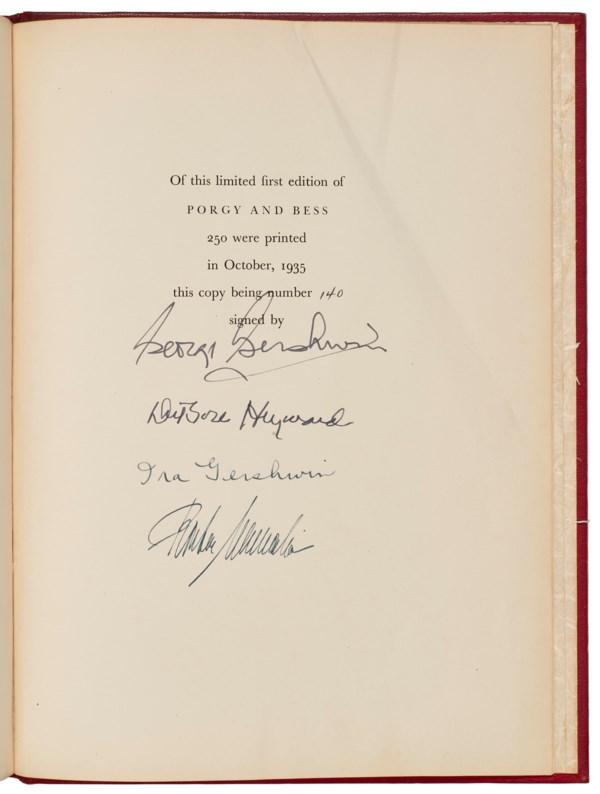 Of this limited first edition of
PORGY AND BESS
250 were printed
in October, 1935
this copy being number 140
signed by
George Gershwin
DuBose Heyward
Ira Gershwin
Rouben Mamoulian